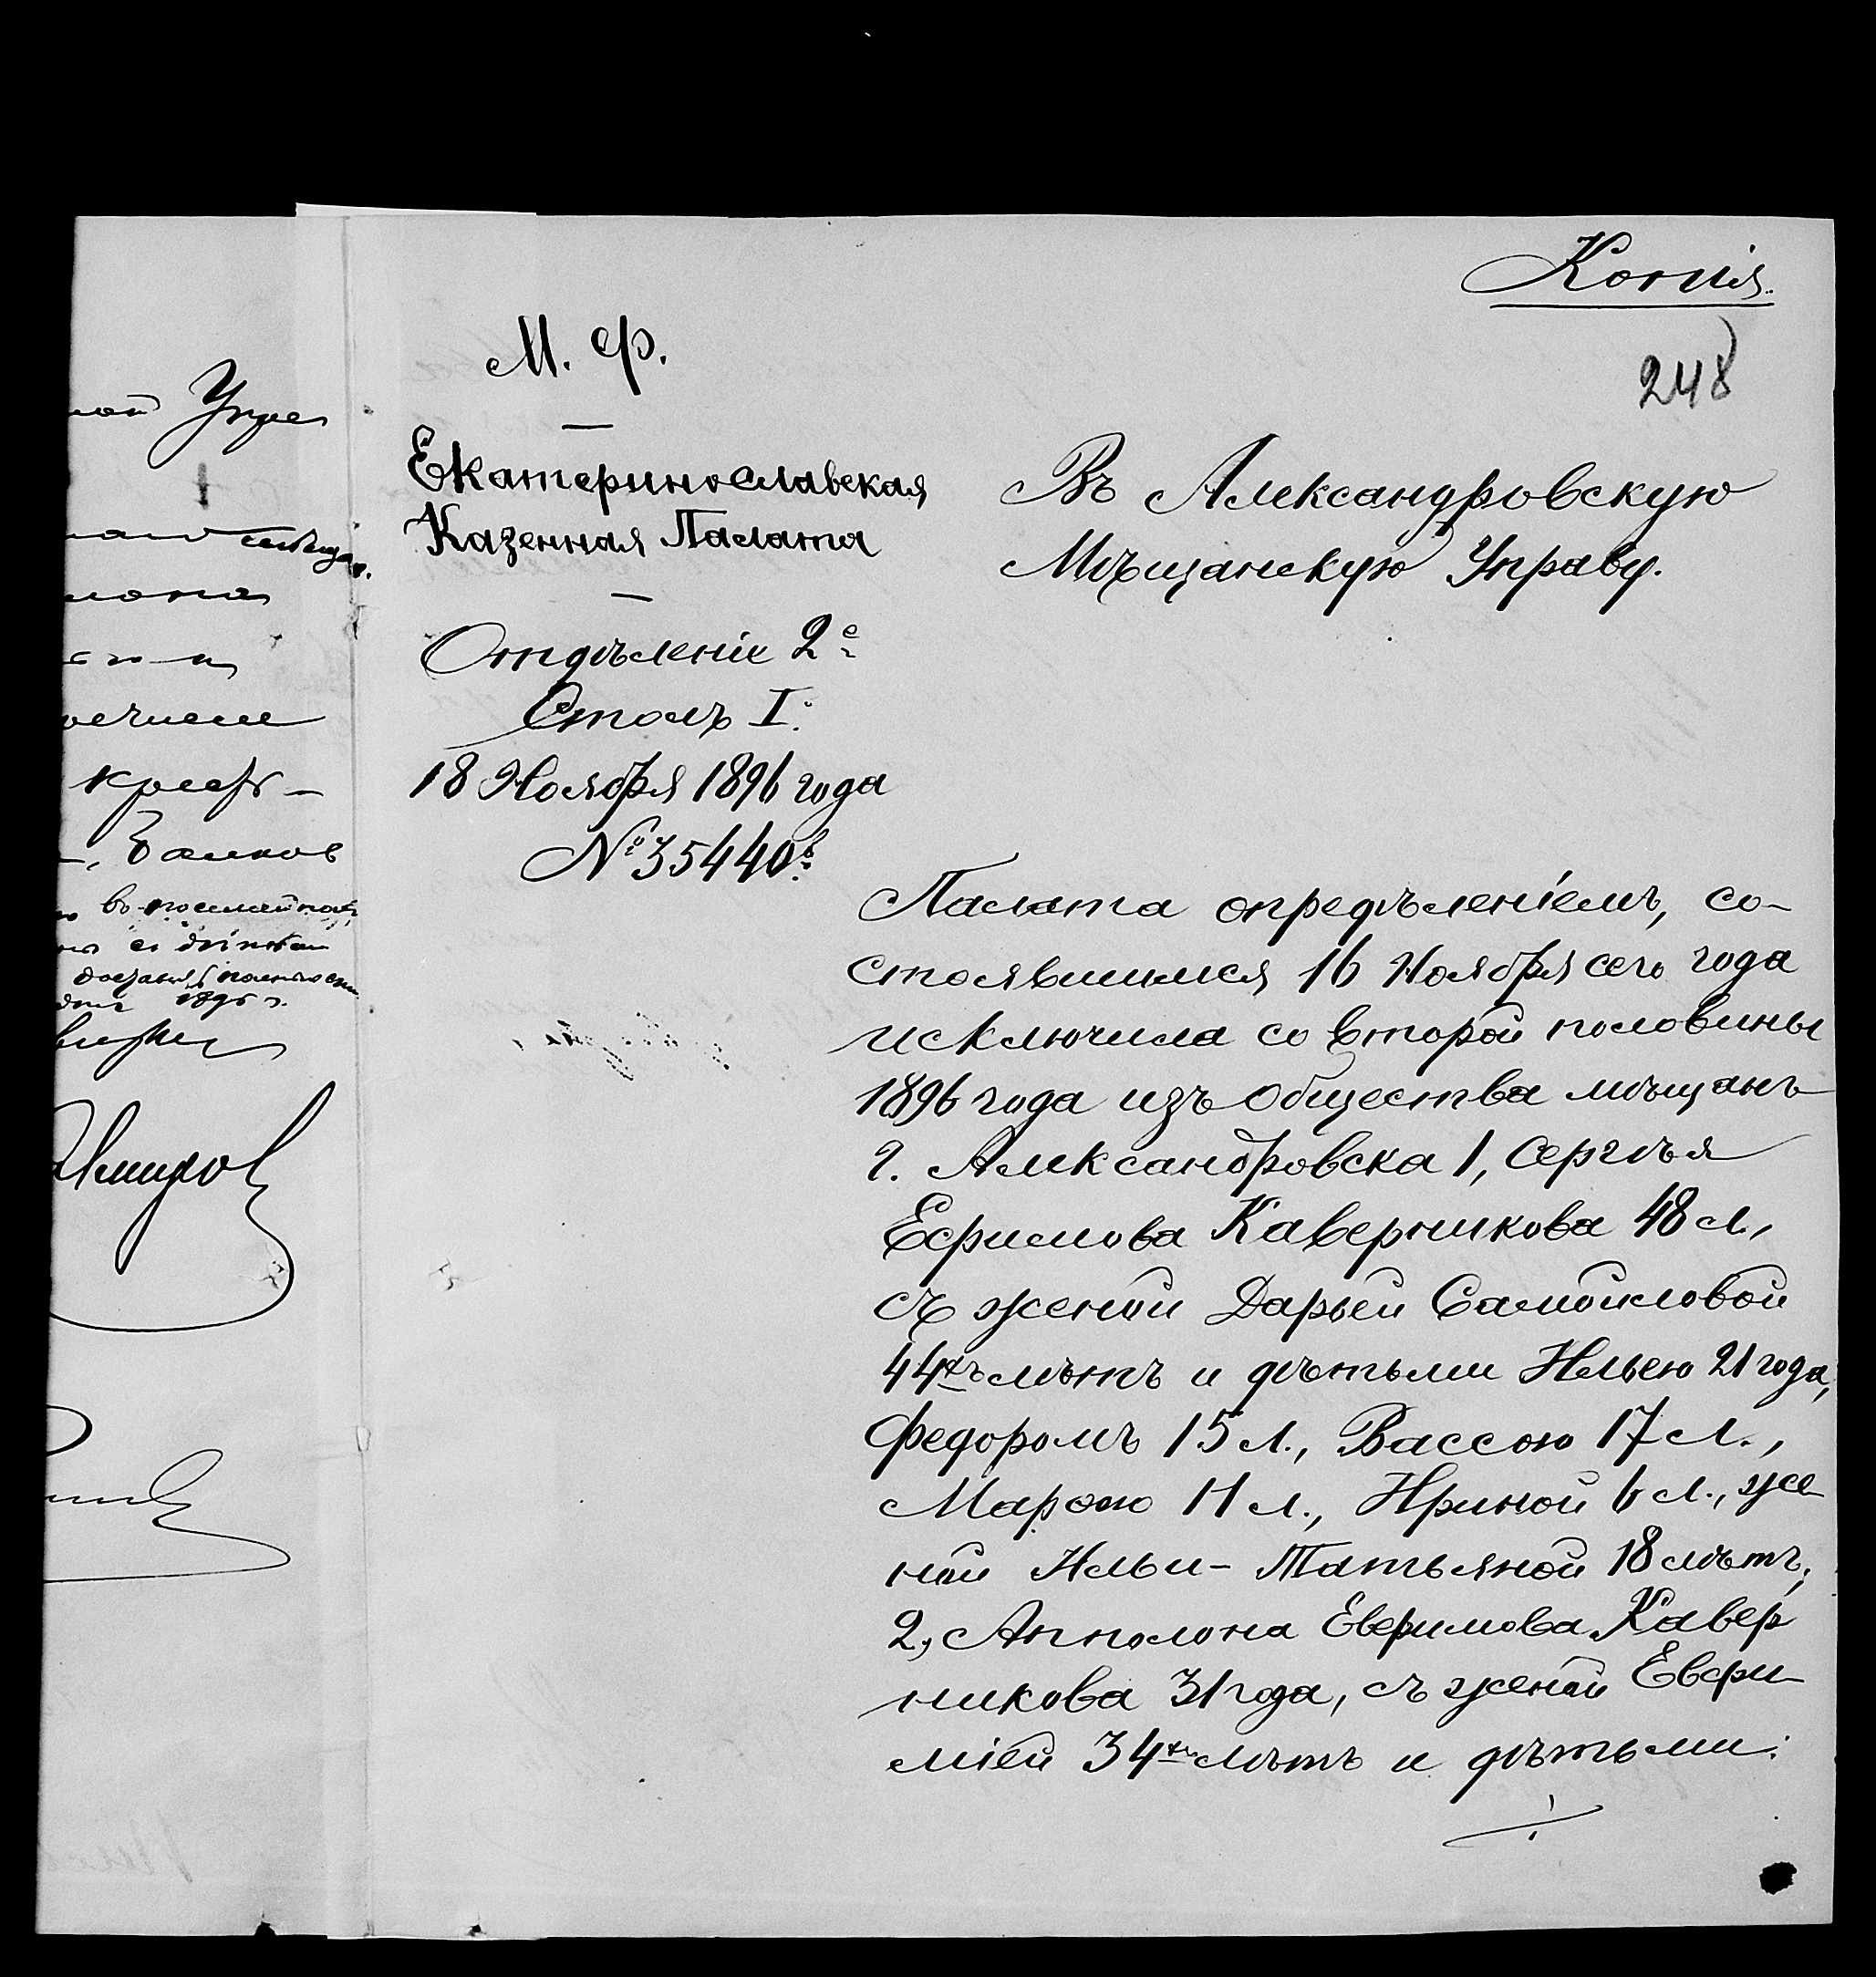 Копія.
248
М. Ф.
Екатеринославская
Казенная Палата
Отдѣленіе 2е
Столъ I.
18 Ноября 1896 года
№ 35440.
Въ Александровскую
Мѣщанскую Управу.
Палата опредѣленіемъ, со-
стоявшимся 16 Ноября сего года
исключила со второй половины
1896 года изъ общества мѣщанъ
г. Александровска 1, Сергѣя
Ефимова Каверникова 48 л.,
съ женой Дарьей Самойловой
44хъ лѣтъ и дѣтьми Ильею 21 года,
Федоромъ 15 л., Вассою 17 л.,
Марфою 11 л., Ириной 6 л., же
ной Ильи - Татьяной 18 лѣтъ,
2, Апполона Евфимова Кавер
никова 31 года, съ женой Евфи
міей 34хъ лѣтъ и дѣтьми: